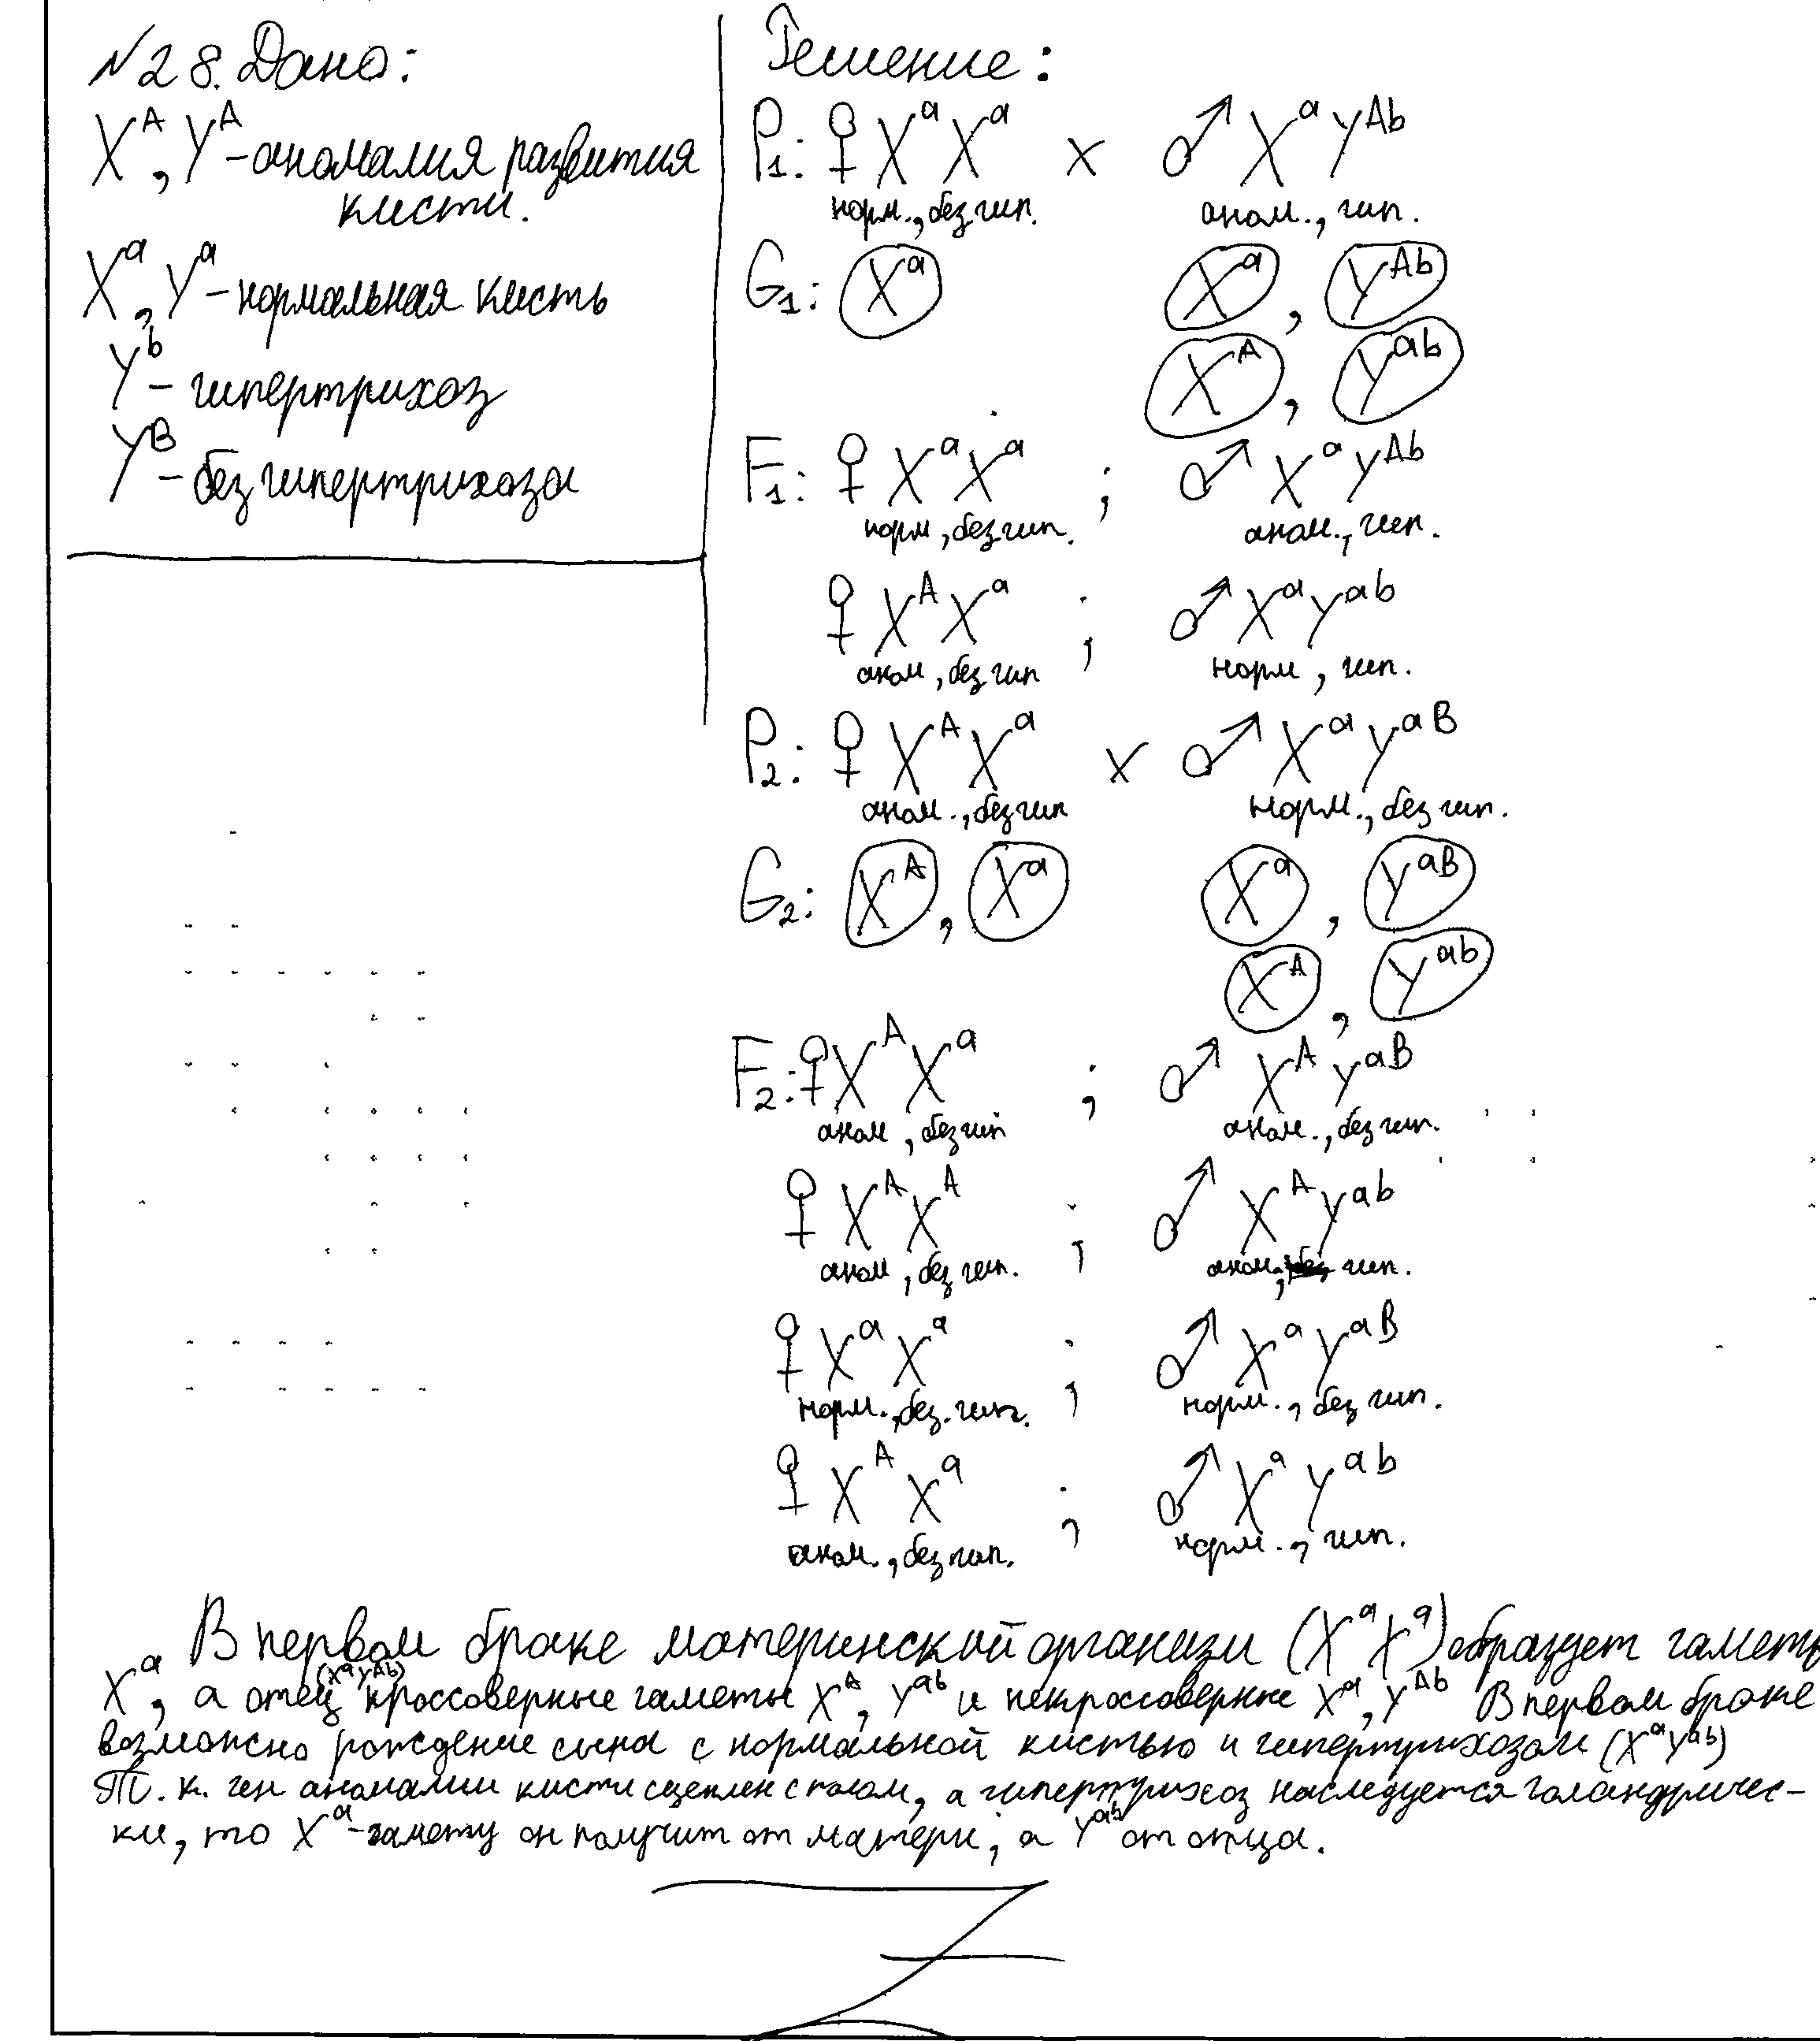 №28. Дано:
X^A, Y^A - аномалия развития
кисти.
X^a, Y^a - нормальная кисть
Y^b - гипертрихоз
Y^B - без гипертрихоза
Решение:
P1: ♀ X^a X^a x ♂ X^a Y^Ab
норм., без гип. аном., гип.
G1: X^a X^a, Y^Ab
X^A, Y^ab
F1: ♀ X^a X^a ; ♂ X^a Y^Ab
норм, без гип. аном., гип.
♀ X^A X^a ; ♂ X^a Y^ab
аном, без гип норм, гип.
P2: ♀ X^A X^a x ♂ X^a Y^aB
аном., без гип норм., без гип.
G2: X^A, X^a X^a, Y^aB
X^A, Y^ab
F2: ♀ X^A X^a ; ♂ X^A Y^aB
аном, без гип аном., без гип.
♀ X^A X^A ; ♂ X^A Y^ab
аном, без гип. аном., гип.
♀ X^a X^a ; ♂ X^a Y^aB
норм., без. гип. норм., без гип.
♀ X^A X^a ; ♂ X^a Y^ab
аном., без гип. норм., гип.
В первом браке материнской организм (X^a X^a) образует гаметы
X^a, а отец (X^a Y^Ab) кроссоверные гаметы X^A, Y^ab и некроссоверные X^a, Y^Ab В первом браке
возможно рождение сына с нормальной кистью и гипертрихозом (X^a Y^ab)
Т. к. ген аномалии кисти сцеплен с полом, а гипертрихоз наследуется голандричес-
ки, то X^a - гамету он получит от матери, а Y^ab от отца.